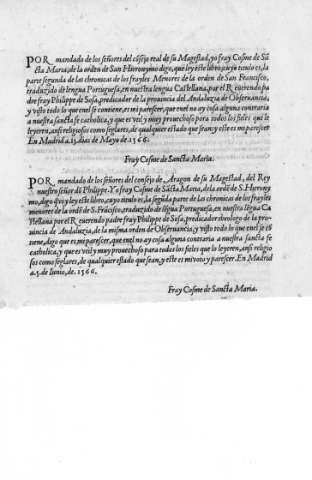 POR mandado de los señores del cõsejo real de su Magestad, yo fray Cosme de Sã
cta Maria, de la orden de San Hieronymo digo, que ley este libro cuyo titulo es, la
parte segunda de las chronicas de los frayles Menores de la orden de San Francisco,
traduzido de lengua Portuguesa, en nuestra lengua Castellana, por el R euerendo pa
dre fray Philippe de Sosa, predicador de la prouincia del Andaluzia de Obseruancia,
y visto todo lo que en el se contiene, es mi parescer, que enel no ay cosa alguna contraria
a nuestra sancta fe catholica, y que es vtil y muy prouechoso para todos los fieles que le
leyeren, assi religiosos como seglares, de qualquier estado que sean y este es mi parescer
En Madrid a.15. dias de Mayo de 1566.
Fray Cosme de Sancta Maria.
POR mandado de los señores del consejo de Aragon de su Magestad, del Rey
nuestro señor dõ Philippe. Yo fray Cosme de Sãcta Maria, dela ordẽ de S. Hierony
mo, digo q̃ vi y ley este libro, cuyo titulo es, la segũda parte de las chronicas de los frayles
menores de la ordẽ de S. Frãcisco, traduzido de lẽgua Portuguesa, en nuestra lẽgua Ca
stellana por el R euerendo padre fray Philippe de Sosa, predicador theologo de la pro
uincia de Andaluzia, de la misma orden de Obseruancia, y visto todo lo que enel se cõ
tiene, digo que es mi parescer, que enel no ay cosa alguna contraria a nuestra sancta fe
catholica, y que es vtil y muy prouechoso para todos los fieles que lo leyeren, ansi religio
sos como seglares, de qualquier estado que sean, y este es mi voto y parescer. En Madrid
a.5. de Iunio, de 1566.
Fray Cosme de Sancta Maria.